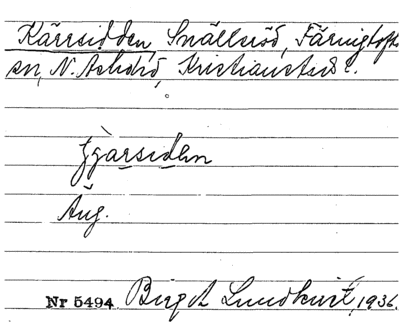 Kärrsidden, Snällröd, Färingtofta
sn, N. Åsbo hd, Kristianstads l.
Aug.
Nr 5494 Birgit Lundkvist, 1936.